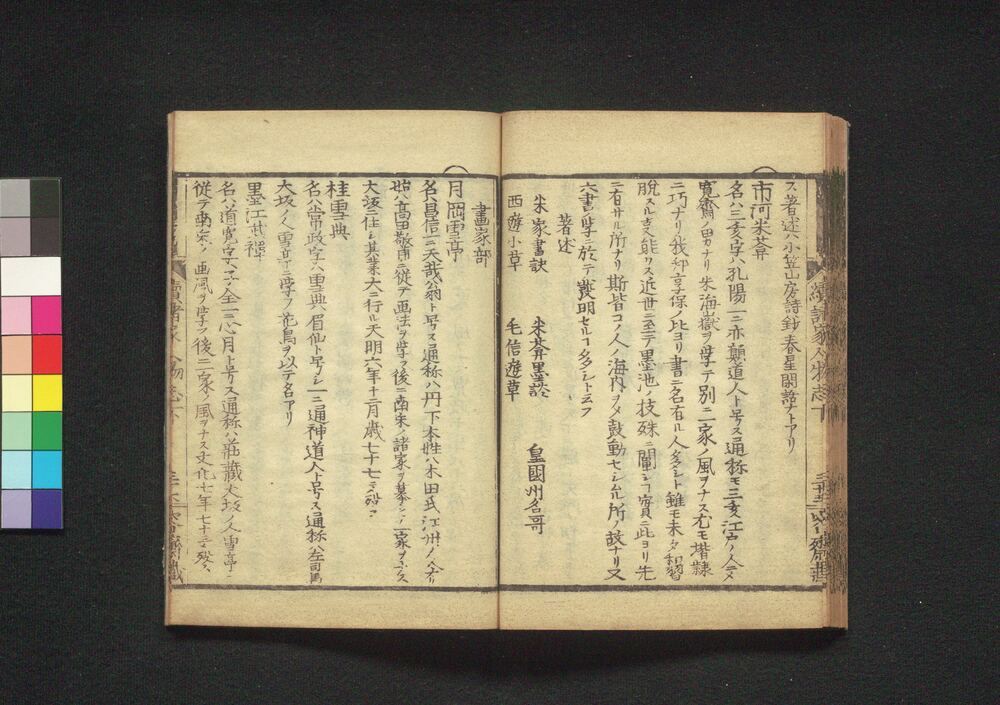 ス著述ハ小笠山房詩鈔春星閣詩ナトアリ
市河米葊
名ハ三亥字ハ孔陽一ニ亦顛道人ト号ス通称モ三亥江戸ノ人ニメ
寛齋ノ男ナリ米海嶽ヲ学テ別ニ一家ノ風ヲナス尤モ楷隷
ニ巧ナリ我邦享保ノ比ヨリ書ニ名有ル人多シト雖モ未タ和習
脱スル事能ハス近世ニ至テ墨池ノ技殊ニ闡シヿ實ニ此ヨリ先
ニ有サル所ナリ斯皆コノ人ノ海内ヲメ鼓動セシムル所ノ故ナリ又
六書ノ学ニ於テ發明セルヿ多シト云フ
著述
米家書訣 米葊墨談 皇國州名哥
西遊小草 毛信遊草
畫家部
月岡雪亭
名ハ昌信一ニ天哉翁ト号ス通称ハ丹下本姓ハ木田氏江州ノ人ナリ
始ハ高田敬甫ニ従テ画法ヲ学フ後ニ南宋ノ諸家ヲ慕シ一家ヲナス
大坂ニ住シ其業大ニ行ル天明六年十二月歳七十七ニテ歿ス
桂雪典
名ハ常政字ハ雪典眉仙ト号シ一ニ通神道人ト号ス通称ハ左司馬
大坂ノ人雪亭ニ学フ花鳥ヲ以テ名アリ
墨江武禪
名ハ道寛字ハ子全一ニ心月ト号ス通称ハ莊藏大坂ノ人雪亭ニ
従テ南宗ノ画風ヲ学フ後一家ノ風ヲナス文化七年七十三ニ歿ス
續諸家人物志下